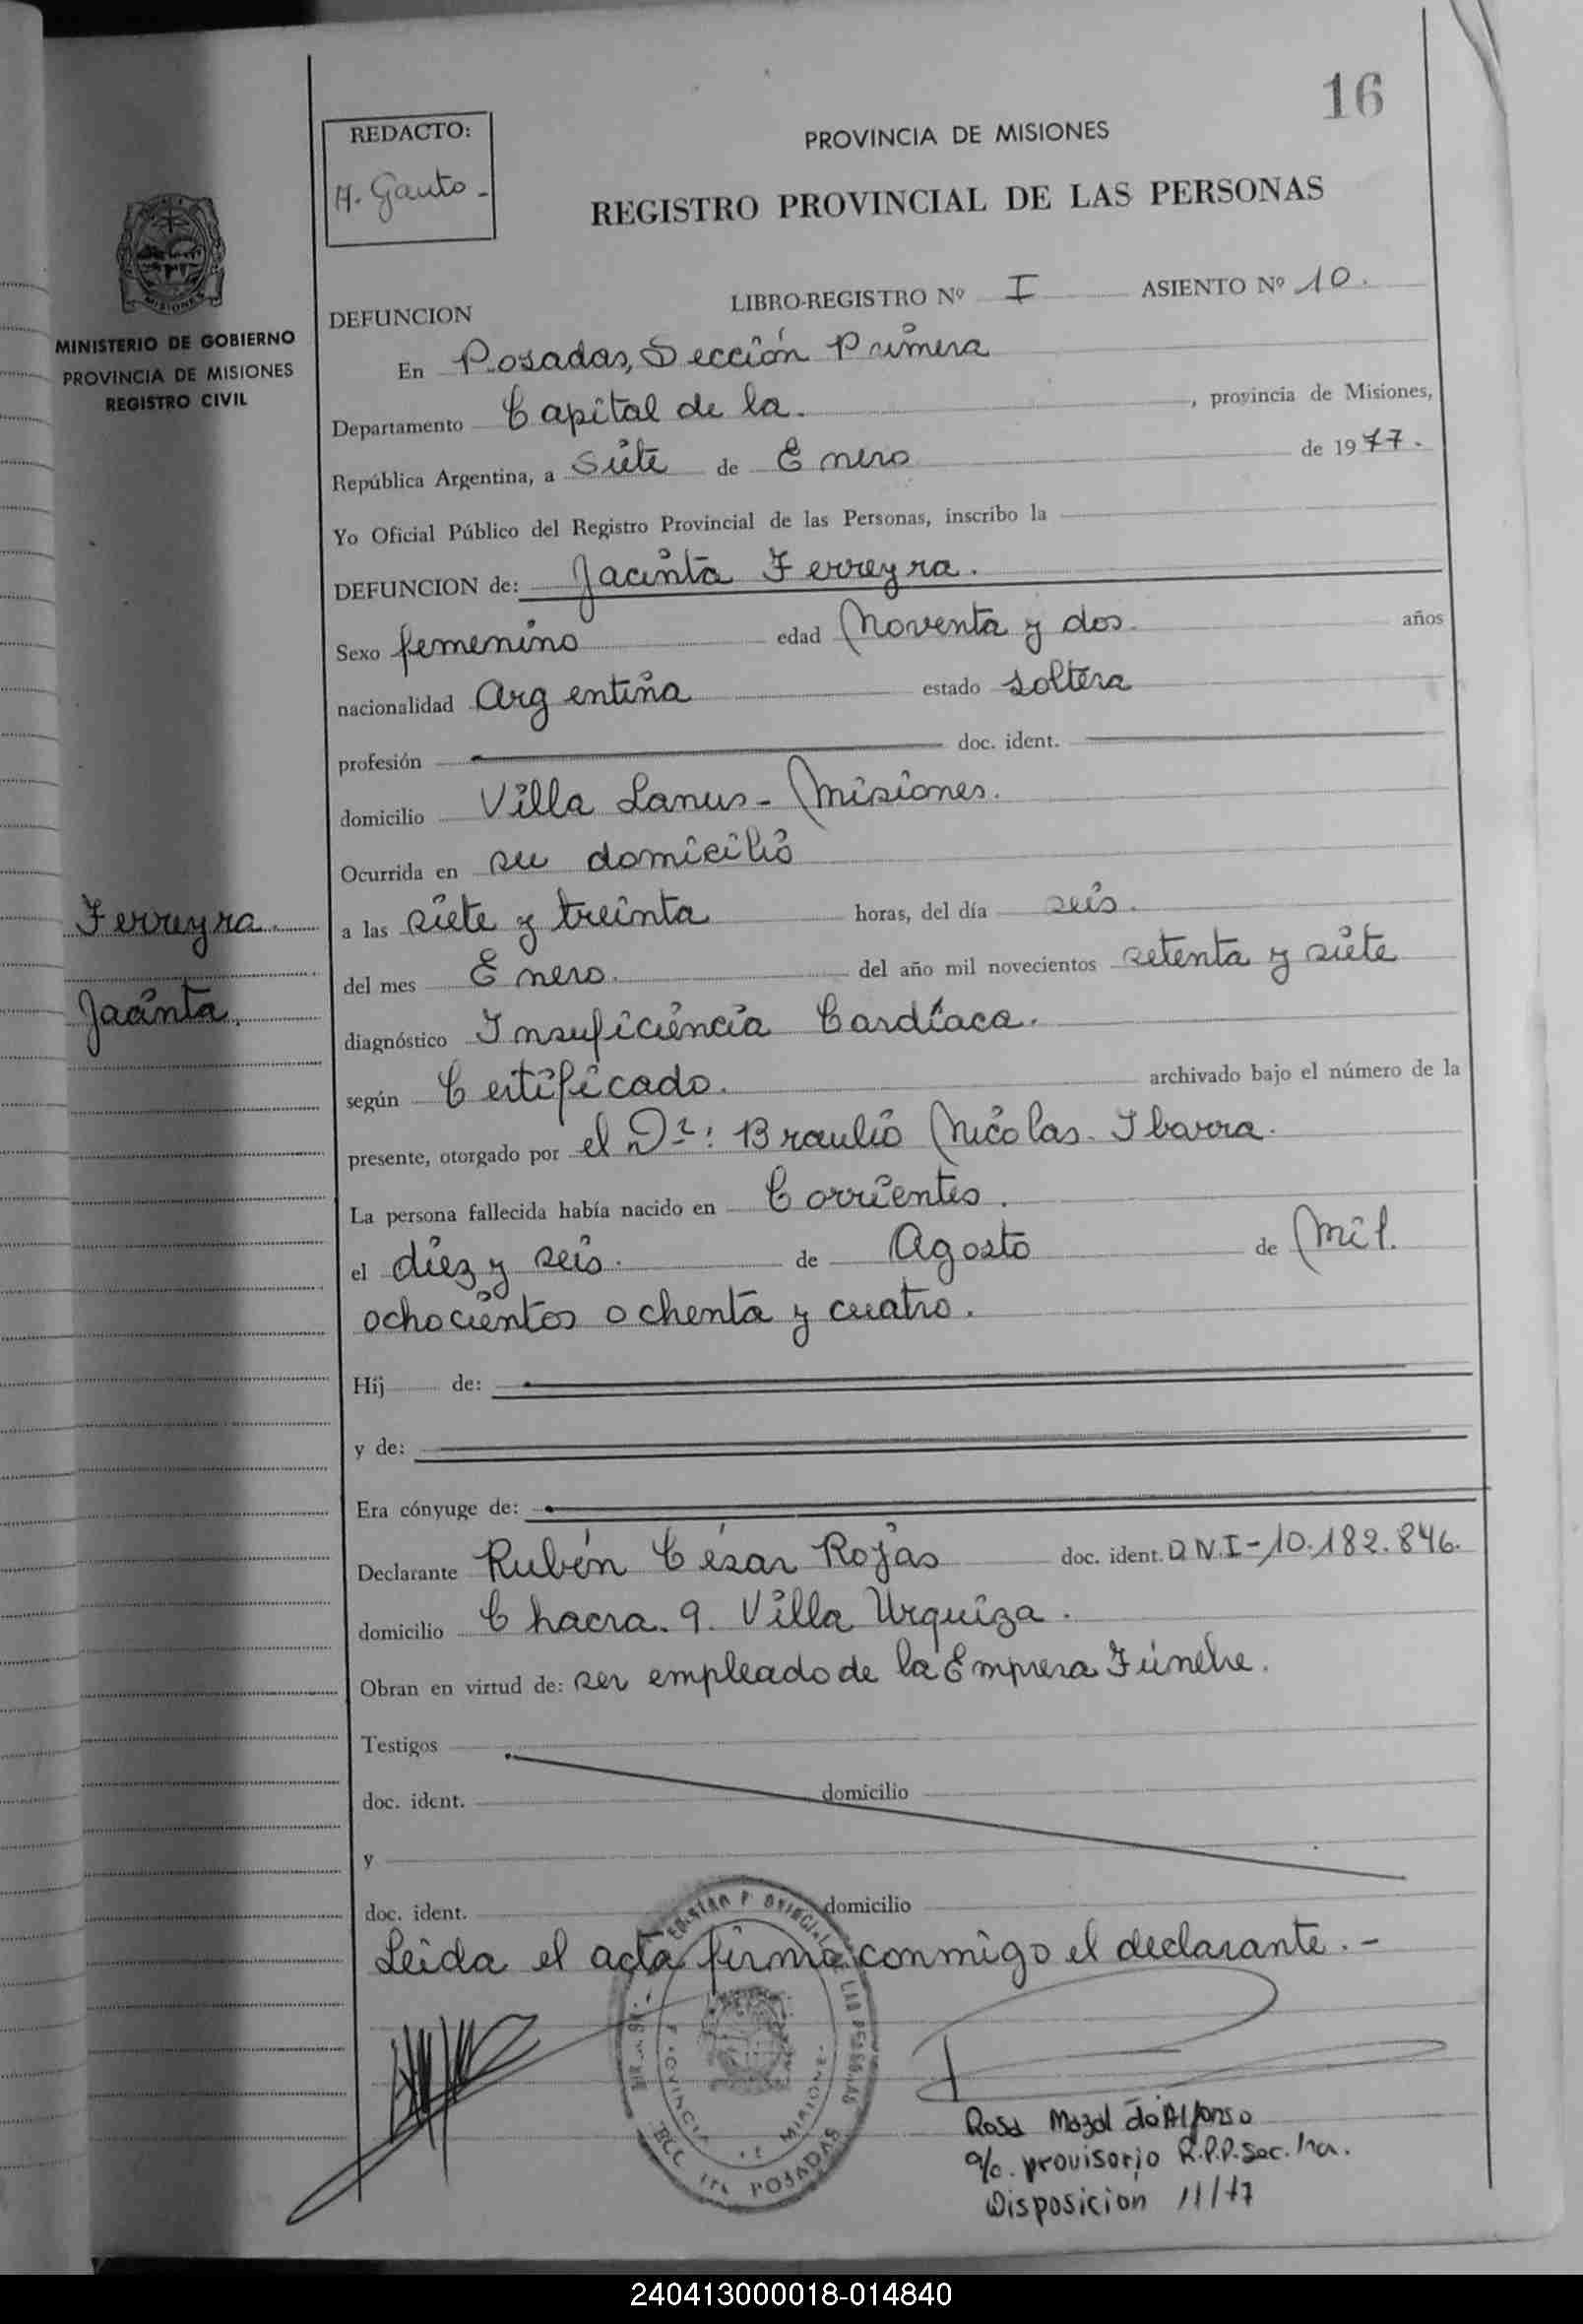 16
REDACTO:
H. Gauto -
PROVINCIA DE MISIONES
REGISTRO PROVINCIAL DE LAS PERSONAS
MISIONES
MINISTERIO DE GOBIERNO
PROVINCIA DE MISIONES
REGISTRO CIVIL
DEFUNCION LIBRO-REGISTRO Nº I ASIENTO Nº 10.
En Posadas, Sección Primera
Departamento Capital de la. , provincia de Misiones,
República Argentina, a Siete de Enero de 1977.
Yo Oficial Público del Registro Provincial de las Personas, inscribo la
DEFUNCION de: Jacinta Ferreyra.
Sexo femenino edad Noventa y dos años
nacionalidad Argentina estado soltera
profesión doc. ident.
domicilio Villa Lanus - Misiones.
Ocurrida en su domicilio
a las siete y treinta horas, del día seis.
del mes Enero. del año mil novecientos setenta y siete
Ferreyra
Jacinta.
diagnóstico Insuficiencia Cardíaca.
según Certificado. archivado bajo el número de la
presente, otorgado por el Dr: Braulio Nicolas Ibarra.
La persona fallecida había nacido en Corrientes.
el diez y seis. de Agosto de Mil.
ochocientos ochenta y cuatro.
Hij de:
y de:
Era cónyuge de:
Declarante Rubén César Rojas doc. ident. D.N.I-10.182.846.
domicilio Chacra. 9. Villa Urquiza.
Obran en virtud de: ser empleado de la Empresa Fúnebre.
Testigos
doc. ident. domicilio
y
doc. ident. domicilio
Leida el acta firma conmigo el declarante. -
PROVINCIA DE MISIONES
POSADAS
Rosa Mazal de Alfonso
a/c. provisorio R.P.P. Sec. 1ra.
Disposicion 11/77
240413000018-014840